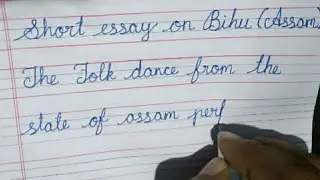 Short essay on Bihu (Assam)
The Folk dance from the
state of assam perf